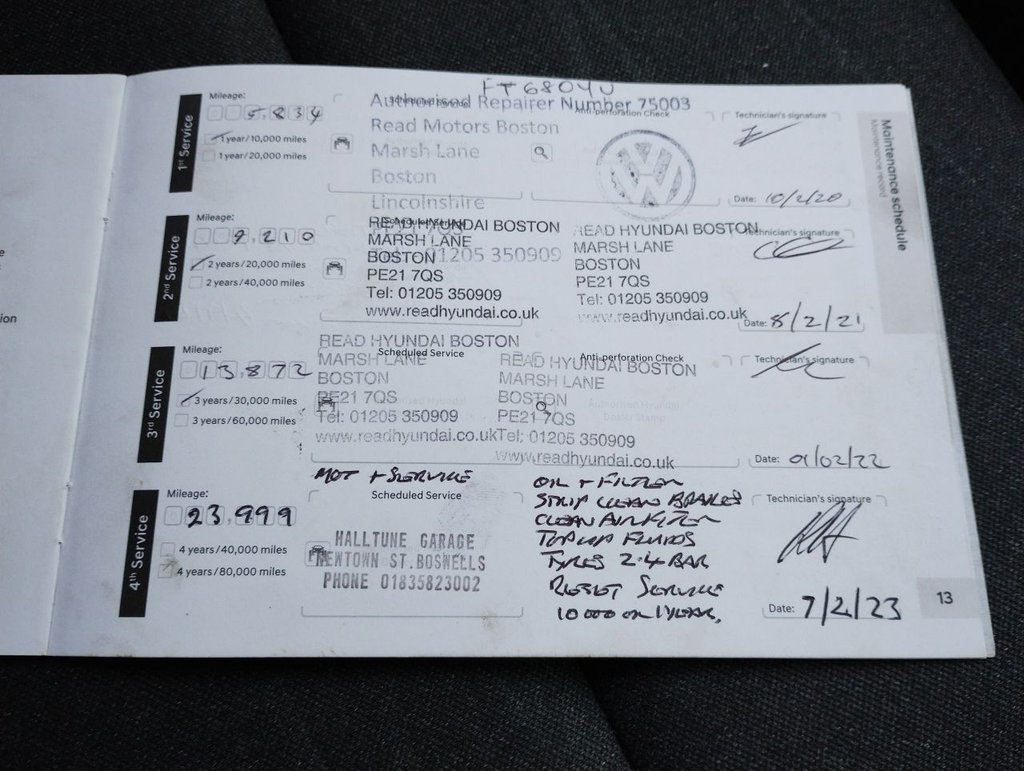 FT68OYU
Maintenance schedule
Maintenance record
1st Service
Mileage:
5,834
1 year/10,000 miles
1 year/20,000 miles
Authorised Repairer Number 75003
Read Motors Boston
Marsh Lane
Boston
Lincolnshire
01205 350909
Anti-perforation Check
Technician's signature
Date: 10/2/20
2nd Service
Mileage:
9,210
2 years/20,000 miles
2 years/40,000 miles
READ HYUNDAI BOSTON
MARSH LANE
BOSTON
PE21 7QS
Tel: 01205 350909
www.readhyundai.co.uk
READ HYUNDAI BOSTON
MARSH LANE
BOSTON
PE21 7QS
Tel: 01205 350909
www.readhyundai.co.uk
Technician's signature
Date: 8/2/21
3rd Service
Mileage:
13,872
3 years/30,000 miles
3 years/60,000 miles
Scheduled Service
READ HYUNDAI BOSTON
MARSH LANE
BOSTON
PE21 7QS
Tel: 01205 350909
www.readhyundai.co.uk
Anti-perforation Check
READ HYUNDAI BOSTON
MARSH LANE
BOSTON
PE21 7QS
Tel: 01205 350909
www.readhyundai.co.uk
Authorised Hyundai
Dealer Stamp
Technician's signature
Date: 01/02/22
4th Service
Mileage:
23,999
4 years/40,000 miles
4 years/80,000 miles
MOT + SERVICE
Scheduled Service
HALLTUNE GARAGE
NEWTOWN ST.BOSWELLS
PHONE 01835823002
OIL + FILTER
STRIP CLEAN BRAKES
CLEAN AIR FILTER
TOP UP FLUIDS
TYRES 2.4 BAR
RESET SERVICE
10 000 OR 1 YEAR,
Technician's signature
Date: 7/2/23
13